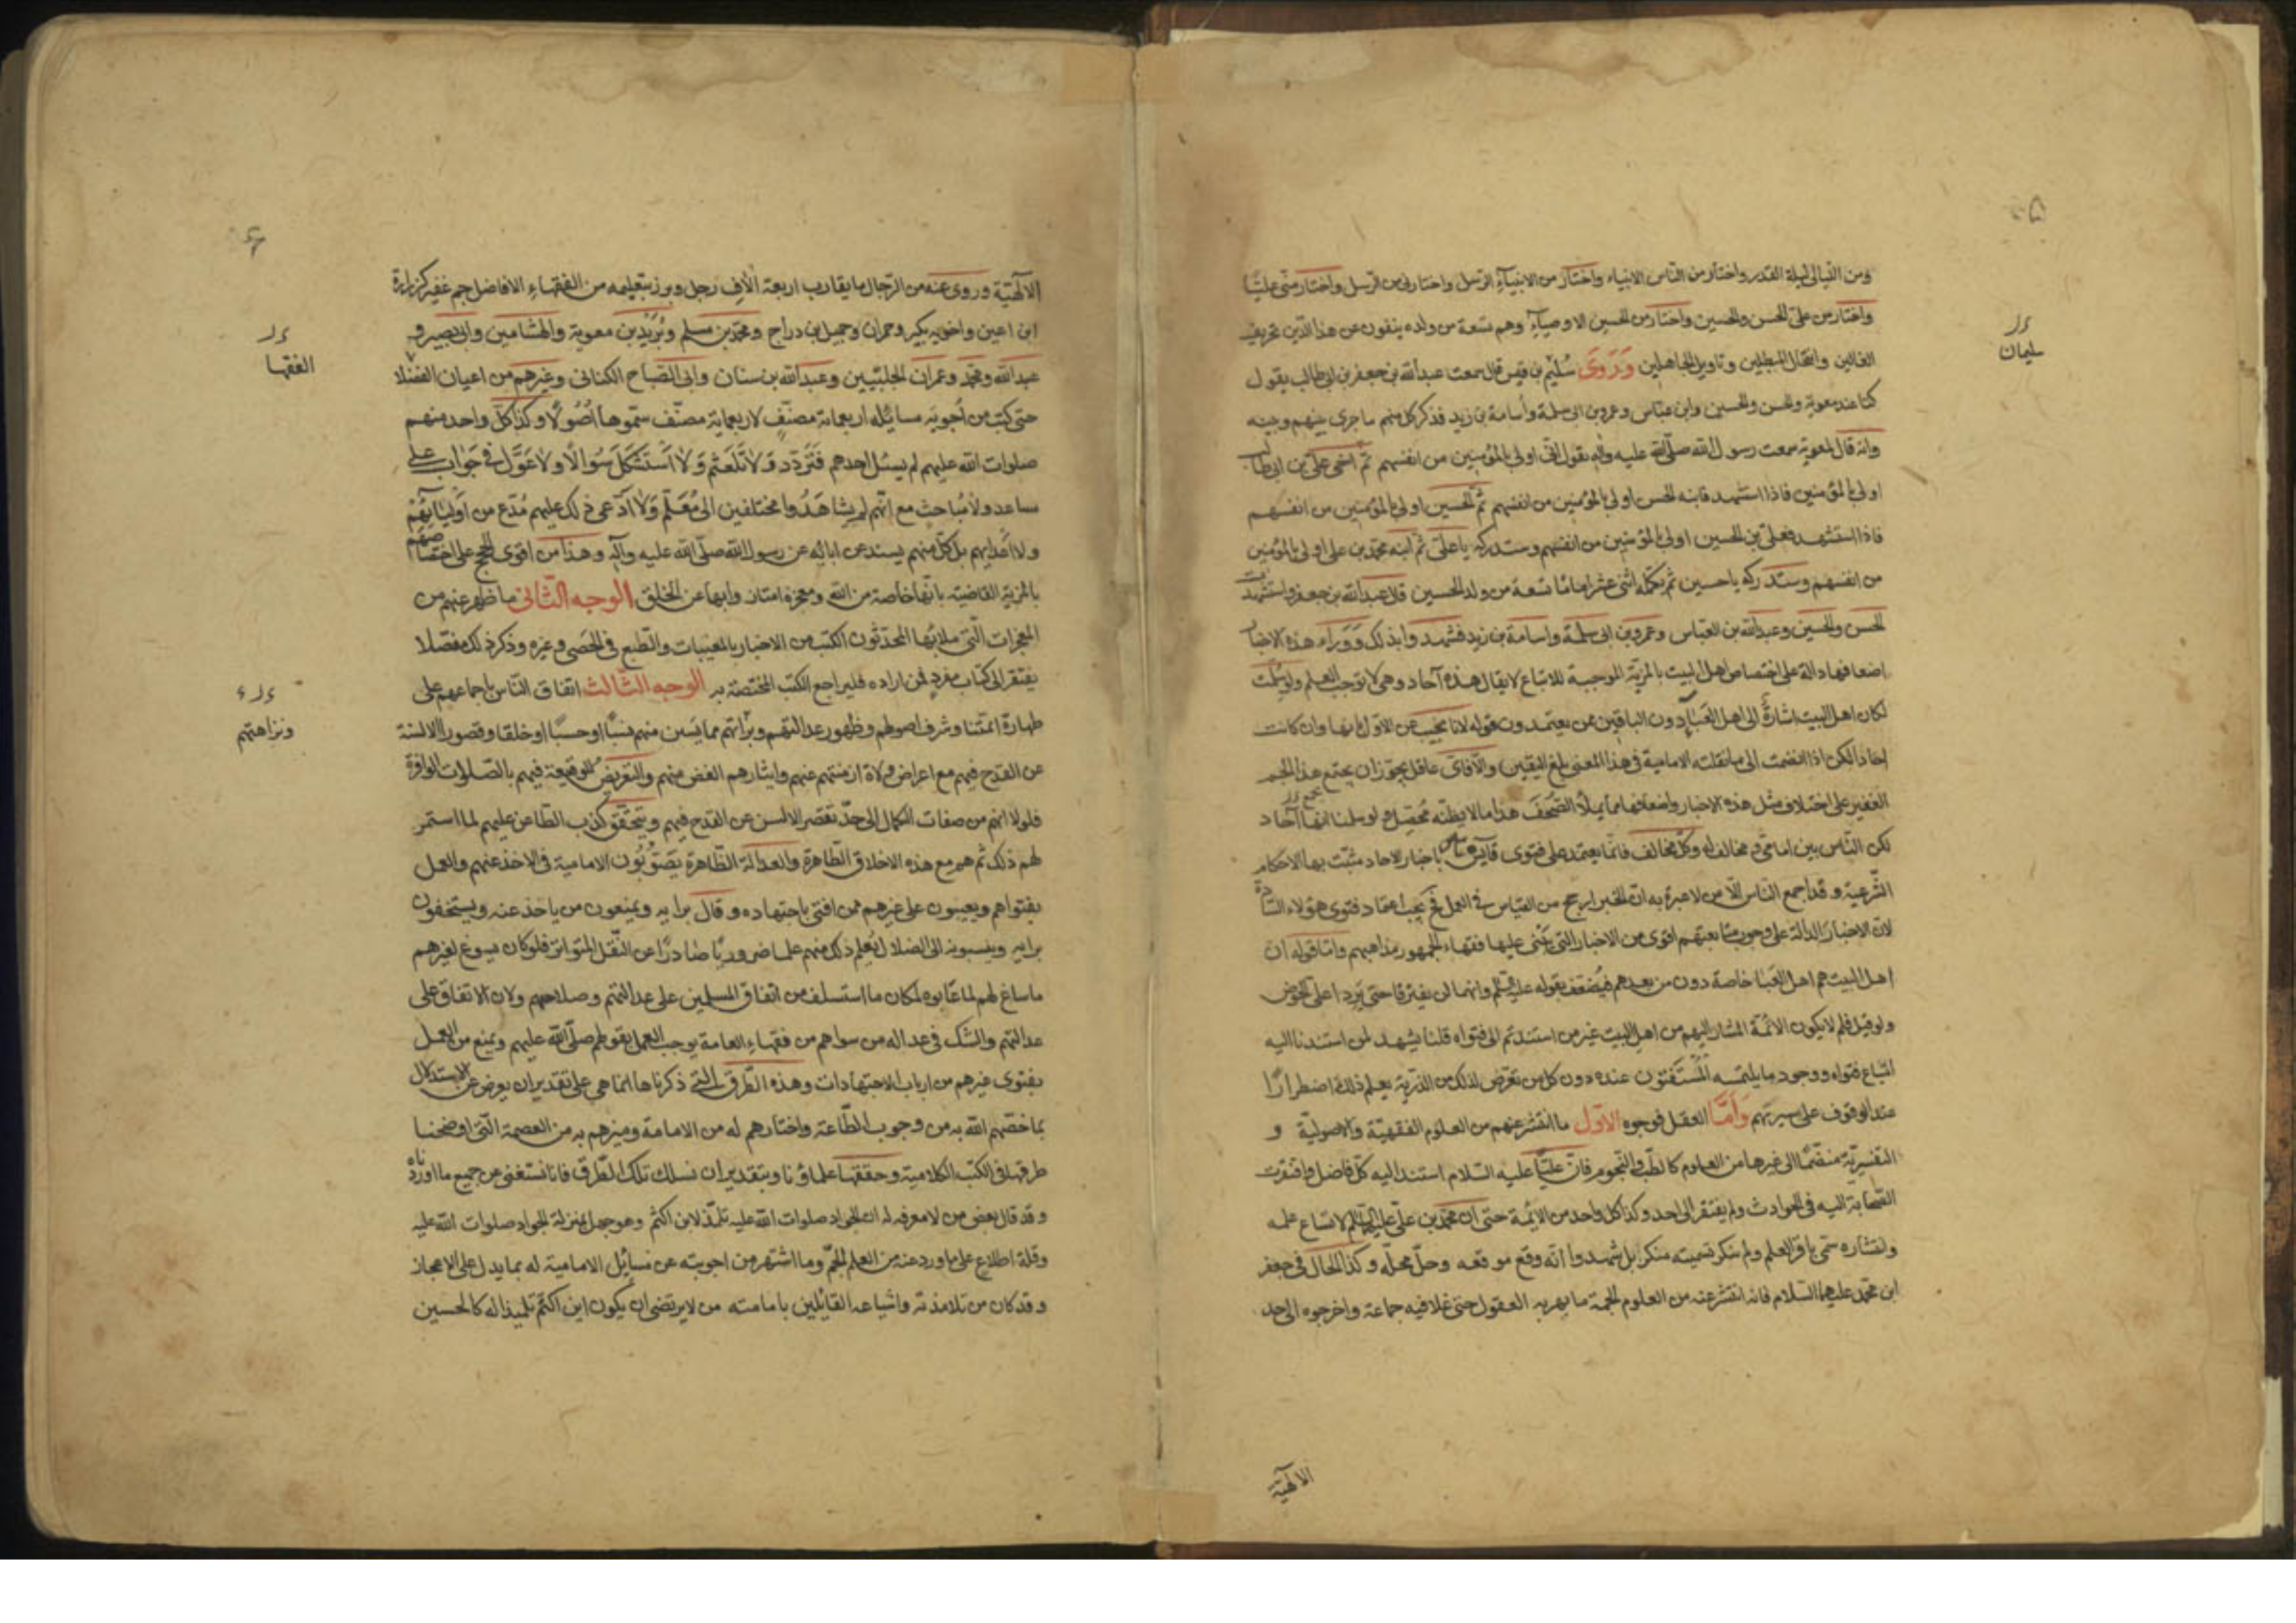 ومن الليالى ليلة القدر واختار من الناس الانبياء واختار من الانبياء الرسل واختارنى من الرسل واختار منى عليّا
واختار من علىّ الحسن والحسين واختار من الحسين الاوصياء وهم تسعة من ولده ينفون عن هذا الدين تحريف
الغالين وانتحال المبطلين وتاويل الجاهلين وَرَوىَ سُلَيْم بن قيس قال سمعت عبدالله بن جعفر بن ابى طالب يقول
كنا عند معوية والحسن والحسين وابن عباس وعمرو بن ابى سلمة وأسامة بن زيد فذكر كل منهم ما جرى بينهم وبينه
وانه قال لمعوية سمعت رسول الله صلّى الله عليه وآله يقول انّى اولى بالمؤمنين من انفسهم ثم اخى علىّ بن ابى طالب
اولى بالمؤمنين فاذا استشهد فابنه الحسن اولى بالمؤمنين من انفسهم ثمّ الحسين اولى بالمؤمنين من انفسهم
فاذا استشهد فعلىّ بن الحسين اولى بالمؤمنين من انفسهم وستدركه يا علىّ ثم ابنه محمّد بن على اولى بالمؤمنين
من انفسهم وستدركه يا حسين ثم تكمله اثنى عشر اماما تسعة من ولد الحسين قال عبدالله بن جعفر واستشهدت
الحسن والحسين وعبدالله بن العباس وعمرو بن ابى سلمة واسامة بن زيد فشهدوا بذلك وَوَرَاء هذه الاخبار
اضعافها دالة على اختصاص اهل البيت بالمزيّة الموجبة للاتباع لا يقال هذه آحاد وهى لا توجب العلم ولو سُلّمت
لكان اهل البيت اشارةً الى اهل العَبَاء دون الباقين ممن يعتمدون قوله لانا نجيب عن الاوّل بانها وان كانت
احادا لكن اذا انضمت الى ما نقلته الامامية فى هذا المعنى بلغ اليقين والّا فاىّ عاقل يجوّز ان يجتمع هذا الجم
الغفير على اختلاف مثل هذه الاخبار واضعافها مما يملأ الصُّحُفَ هذا ما لا يظنّه مُحَصّل ولو سلمنا انها آحاد
لكن النّاس بين امامىّ ومخالف له وكلّ مخالف فانما يعتمد على فتوى قايس باخبار الاحاد مثبّت بها الاحكام
الشّرعية وقد اجمع الناس الّا من لا عبرة به انّ الخبر ارجح من القياس فى العمل فح يجب اعتماد فتوى هؤلاء السّادة
لان الاخبار الدالة على وجوب متابعتهم اقوى من الاخبار التى يَبْنى عليها فقهاء الجمهور مذاهبهم وامّا قوله ان
اهل البيت هم اهل العَبَا خاصة دون من بعدهم فيُضعّف بقوله عليه السّلم وانهما لن يفترقا حتى يَرِدا على الحوض
ولو قيل فلم لا يكون الائمّة المشار اليهم من اهل البيت غير من استندتم الى فتواه قلنا يشهد لمن استندنا اليه
اتّباع فتواه ووجود ما يلتمسه المُسْتَفتون عنده دون كل من تعرّض لذلك من الذرّية يعلم ذلك اضطرارًا
عند الوقوف على سيرتهم وَامَّا العقل فوجوه الاوّل ما انتشر عنهم من العلوم الفقهيّة والاصوليّة و
التفسيريّة منضمّا الى غيرها من العلوم كالطّب والنّجوم فانّ عليّا عليه السّلام استند اليه كلّ فاضل وافتقرت
الصّحابة اليه فى الحوادث ولم يفتقر الى احد وكذا كل واحد من الائمّة حتى ان محمّد بن علىّ عليهما السّلم لاتساع علمه
وانتشاره سمّى باقر العلم ولم ينكر تسميته منكر بل شهدوا انّه وقع موقعه وحلّ محلّه وكذا الحال فى جعفر
ابن محمّد عليهما السّلام فانه انتشر عنه من العلوم الجمّة ما يهر به العقول حتى غلا فيه جماعة واخرجوه الى حد
الالٓهية
سليمان
الالٓهيّة وروى عنه من الرّجال ما يقارب اربعة آلاف رجل وبرز بتعليمه من الفقهاء الافاضل جم غفير كزرارة
ابن اعين واخويه بكير وحمران وجميل بن دراج ومحمّد بن مسلم وبُرَيْد بن معوية والهشامين وابى بصير و
عبدالله ومحمّد وعمران الحلبيّين وعبدالله بن سنان وابى الصّباح الكنانى وغيرهم من اعيان الفضلا
حتى كتب من أجوبة مسائله اربعمائة مصنّف لاربعماية مصنّف سمّوها أُصُولًا وكذا كلّ واحد منهم
صلوات الله عليهم لم يسئل احدهم فَتَرَدّد وَلا تَلَعثَم وَلا اَسْتَشكَل سُوالًا ولا عَوَّل فى جَواب على
مساعد ولا مُباحث مع انّهم لم يشاهَدُوا مختلفين الى مُعَلّم وَلا ادّعى ذلك عليهم مُدّع من اَوليَائهم
ولا اعدايهم بل كلّ منهم يسند عن ابائه عن رسول الله صلّى الله عليه وآله وهذا من اقوى الحجج على اختصاصهم
بالمزيّة القاضية بانّها خاصة من الله ومعجزة امتاز وابها عن الخلق الوجه الثّانى ما ظهر عنهم من
المعجزات الّتى ملا بها المحدّثون الكتب من الاخبار بالمغيبات والطّبع فى الحَصى وغيره وذكر ذلك مفصّلا
يفتقر الى كتاب مفرد فمن اراده فليراجع الكتب المختصّة به الوجه الثّالث اتفاق النّاس باجماعهم على
طهارة ائمّتنا وشرف اصولهم وظهور عدالتهم وبرأتهم مما يَشين منهم نسبًا او حسبًا او خلقا وقصور الالسنة
عن القدح فيهم مع اعراض ولاة ازمنتهم عنهم وايثارهم الغض منهم والتعريض للوقيعة فيهم بالصّلوات الوافرة
فلولا انهم من صفات الكمال الى حدّ تقصر الالسن عن القدح فيهم ويتحقّق كذب الطّاعن عليهم لما استمر
لهم ذلك ثم هم مع هذه الاخلاق الطّاهرة والعدالة الظّاهرة يصَوّبُون الامامية فى الاخذ عنهم والعمل
بفتواهم ويعيبون على غيرهم ممن افتى باجتهاده وقال برايه ويمنعون من ياخذ عنه ويستخفون
برايه وينسبونه الى الضلال يُعلم ذلك منهم علما ضروريًا صَادرًا عن النّقل المتواتر فلو كان يسوغ لغيرهم
ما ساغ لهم لما عابوه لمكان ما استسلف من اتفاق المسلمين على عدالتهم وصلاحهم ولان الاتفاق على
عدالتهم والشك فى عدالة من سواهم من فقهاء العامة يوجب العمل بقولهم صلّى الله عليهم ويمنع من العمل
بفتوى غيرهم من ارباب الاجتهادات وهذه الطّرق التى ذكرناها انما هى على تقدير ان يعرض عن الاستدلال
بما خصّهم الله به من وجوب الطّاعة واختارهم له من الامامة وميزهم به من العصمة التى اوضحنا
طرقها فى الكتب الكلامية وحققها علماؤنا وبتقدير ان نسلك تلك الطّرق فانا نستغنى عن جميع ما اوردناه
وقد قال بعض من لا معرفة له ان الجواد صلوات الله عليه تلمّذ لابن اكثم وهو جهل بمنزلة الجواد صلوات الله عليه
وقلة اطلاع على ما ورد عنه من العلم الجمّ وما اشتهر من اجوبته عن مسائل الامامية له بما يدل على الاعجاز
وقد كان من تلامذته واشياعه القائلين بامامته من لا يرتضى ان يكون ابن اكثم تلميذا له كالحسين
الفقها
ونزاهتهم